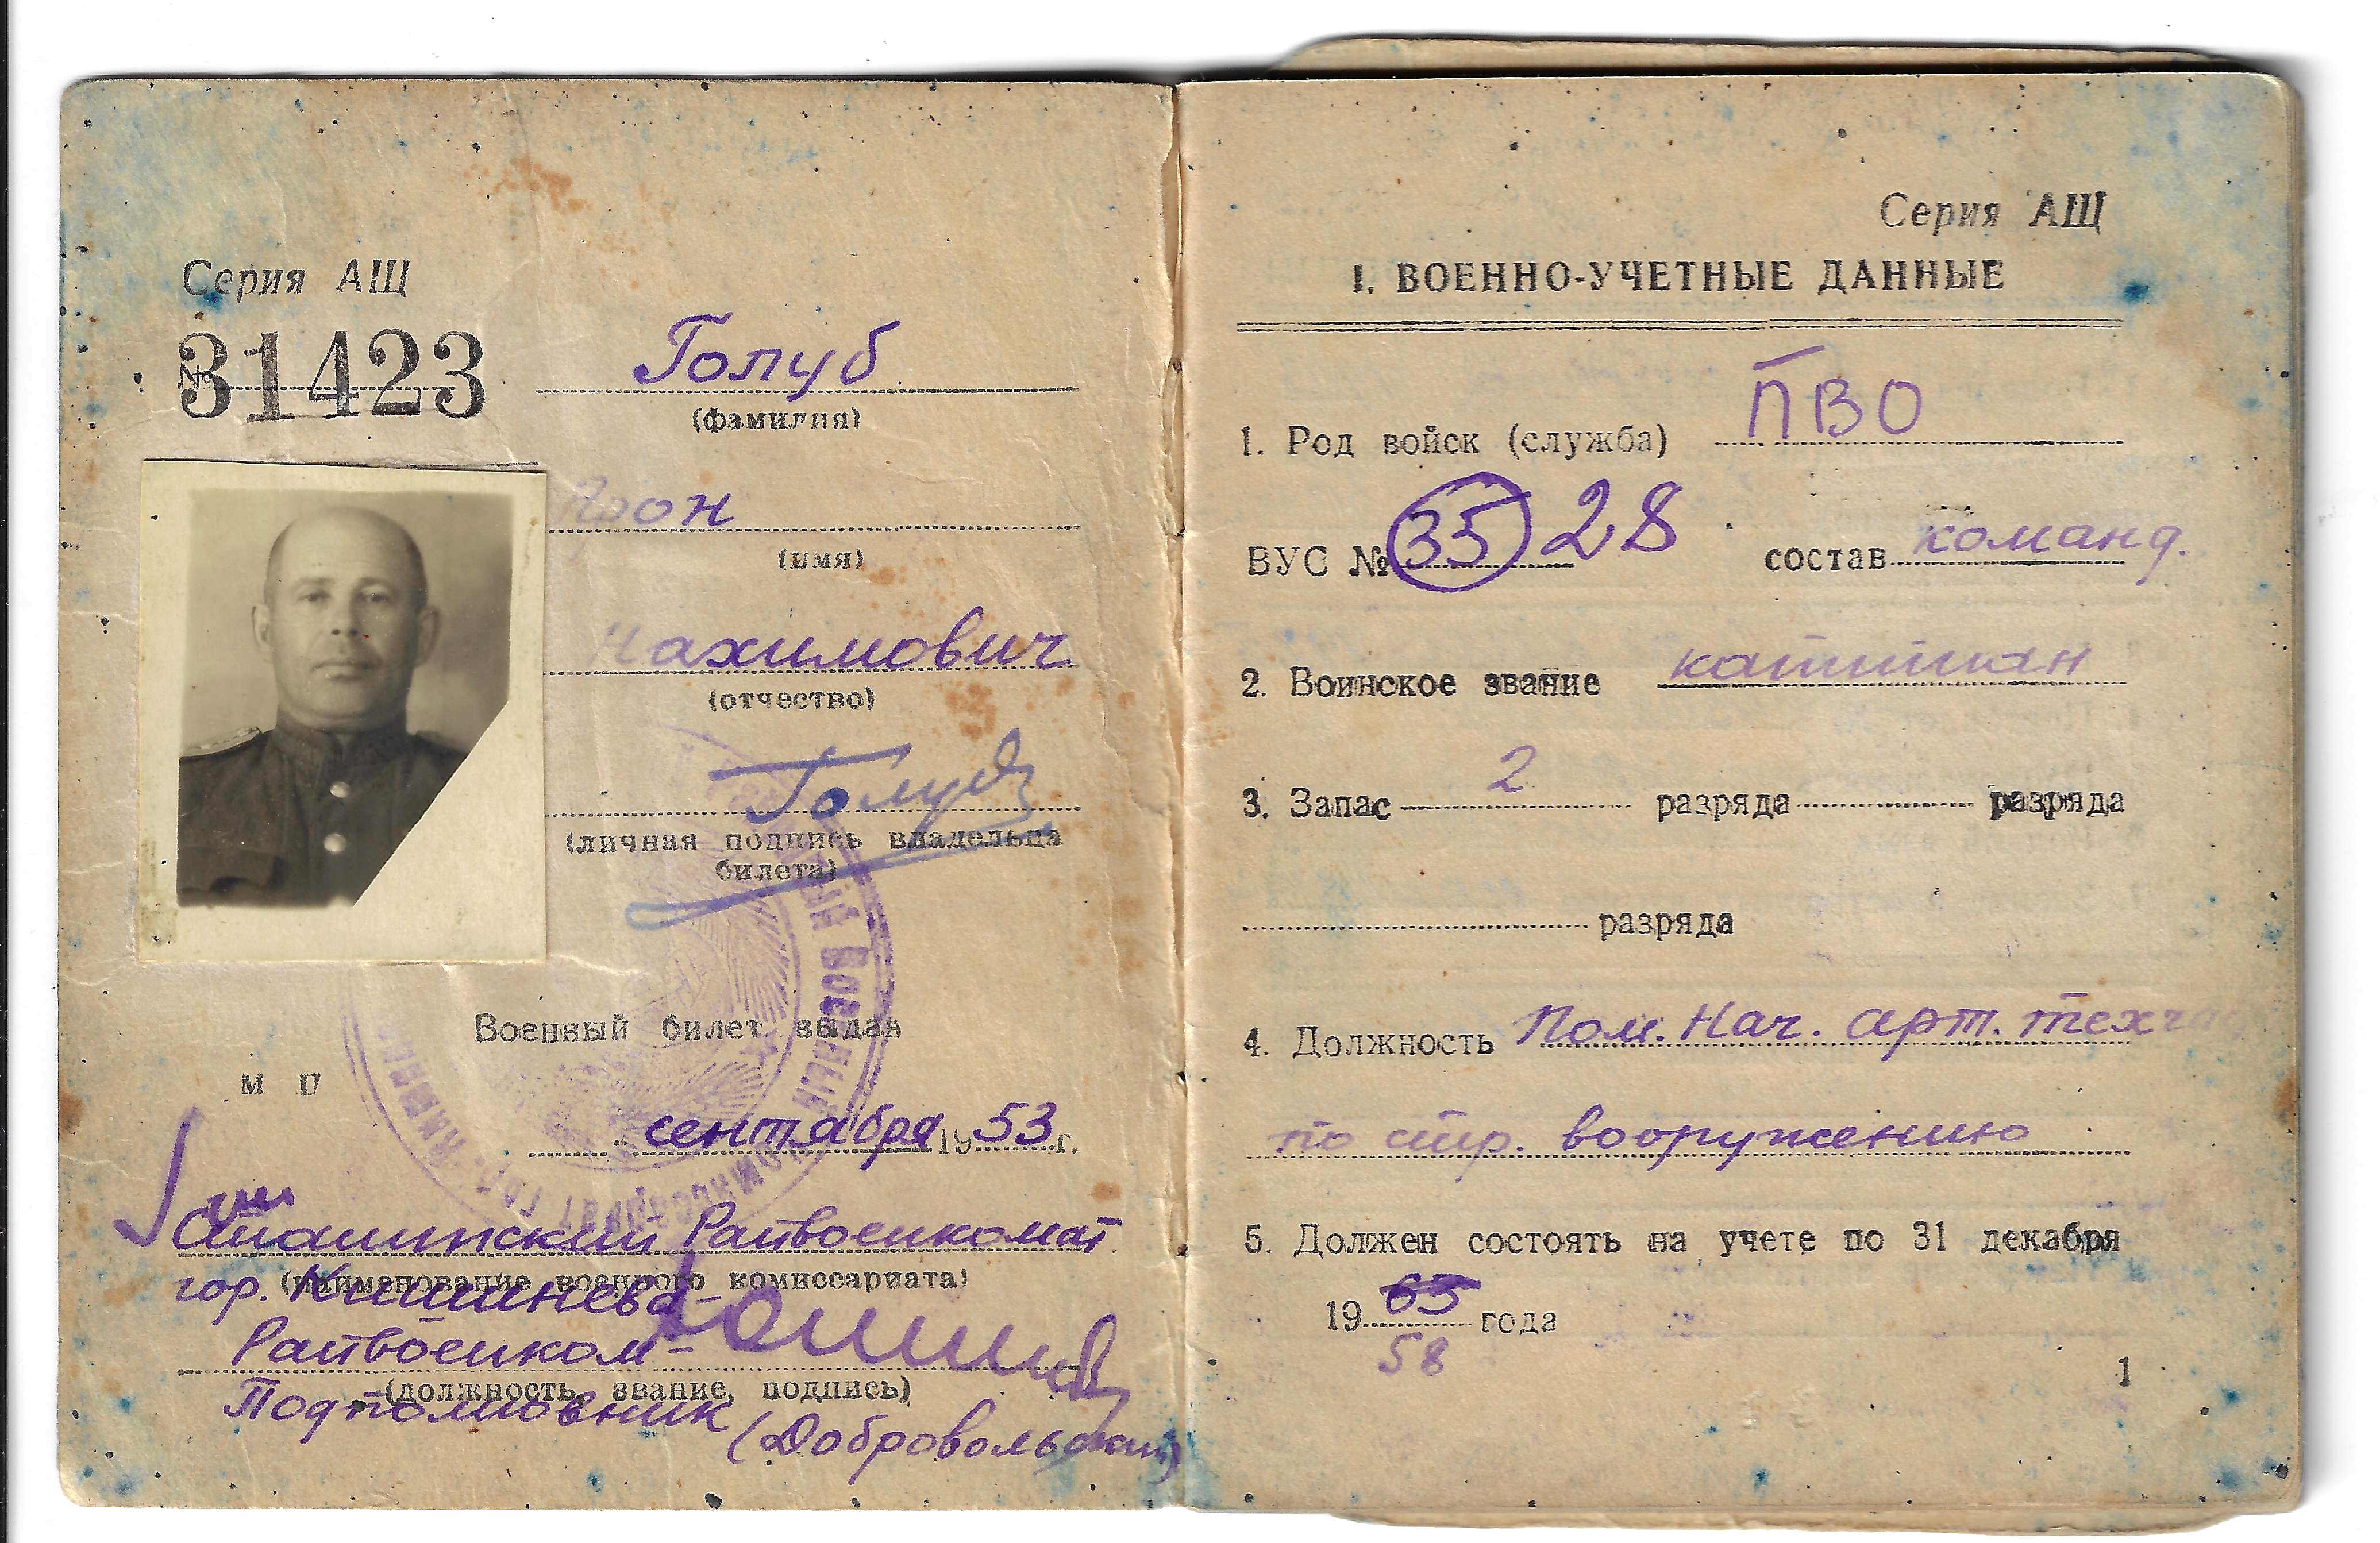 Серия АЩ
№ 31423
Голуб
(фамилия)
Арон
(имя)
Нахимович
(отчество)
Голуб
(личная подпись владельца
билета)
Военный билет выдан
М П
" сентября 1953 г.
Сталинский Райвоенкомат
(наименование военного комиссариата)
гор. Кишинева
Райвоенком -
(должность, звание, подпись)
Подполковник
(Добровольский)
Серия АЩ
1. ВОЕННО-УЧЕТНЫЕ ДАННЫЕ
1. Род войск (служба) ПВО
ВУС № 35 28 состав команд.
2. Воинское звание капитан
3. Запас 2 разряда разряда
разряда
4. Должность Пом. Нач. арт. техчасти
по стр. вооружению
5. Должен состоять на учете по 31 декабря
1963 года
58
1